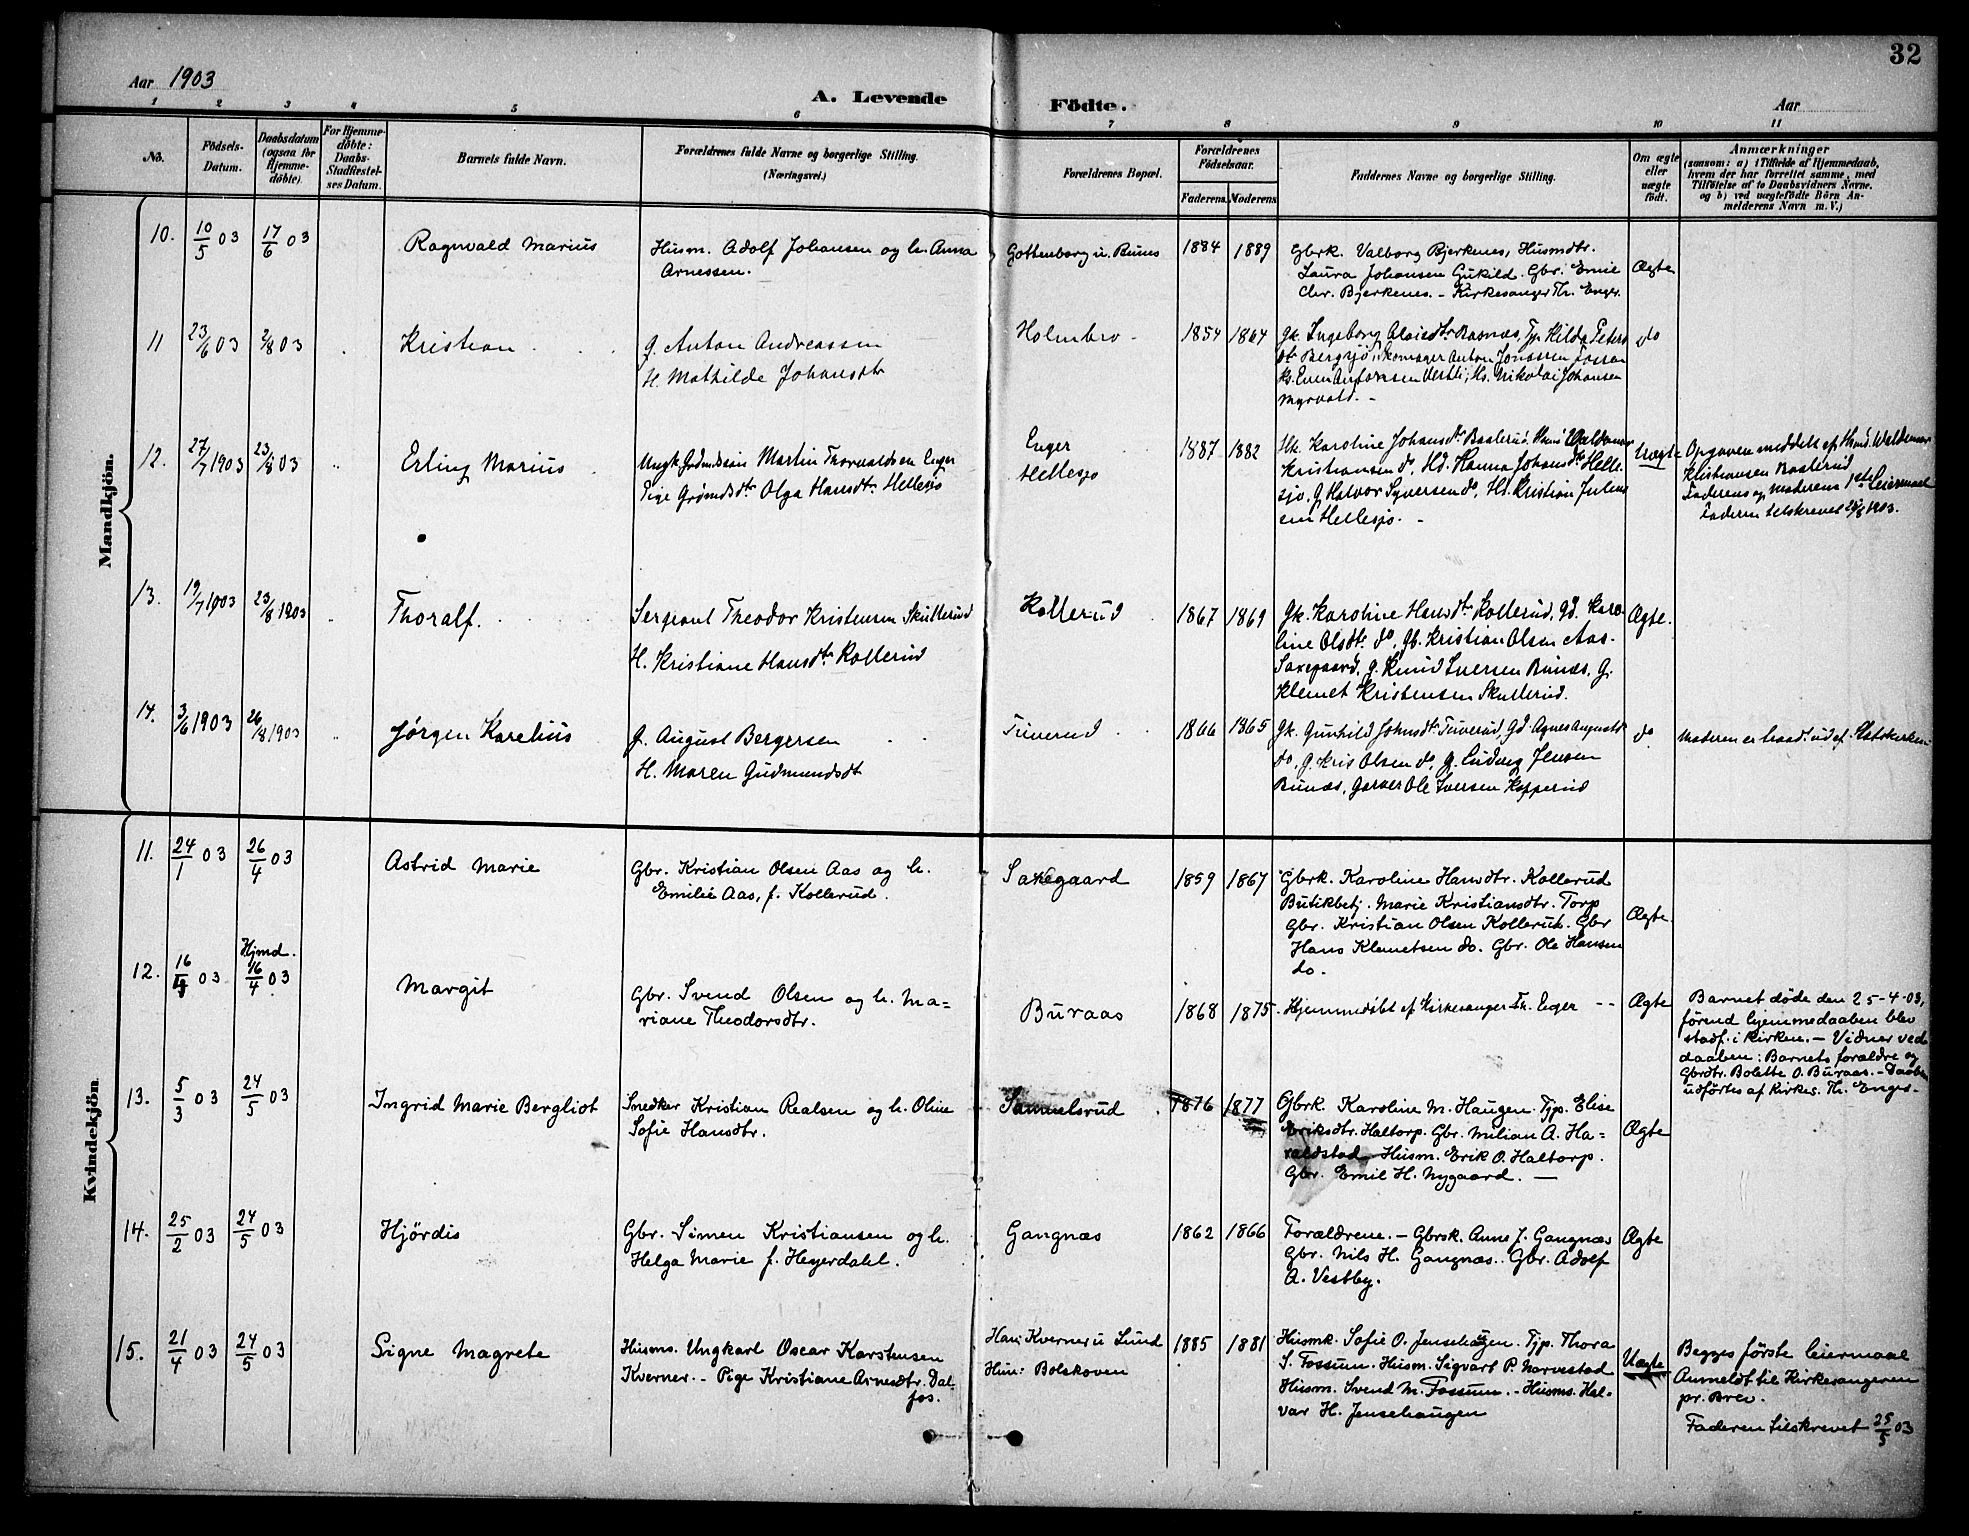 Aar 1903
A. Levende Födte.
Aar
32
1 2 3 4 5 6 7 8 9 10 11
No.
Födsels-Datum.
Daabsdatum (ogsaa for Hjemmedöbte).
For Hjemmedöbte: Daabs-Stadfæstelses Datum.
Barnets fulde Navn.
Forældrenes fulde Navne og borgerlige Stilling.
(Næringsvei.)
Forældrenes Bopæl.
Forældrenes Födselsaar.
Faderens. Moderens.
Faddernes Navne og borgerlige Stilling.
Om ægte eller uægte födt.
Anmærkninger
(saasom: a) i Tilfælde af Hjemmedaab,
hvem der har forrettet samme, med
Tilföielse af to Daabsvidners Navne.
og b) ved uægtefödte Börn An-
melderens Navn m. V.)
Mandkjön.
10. 10/5 03 17/6 03 Ragnvald Marius
Husm. Adolf Johansen og h. Anna
Arnessen.
1884 1889
Gbrk. Valborg Bjerkenes, Husmdtr.
Laura Johansen Gukild. Gbr. Emil
Chr. Bjerkenes. – Kirkesanger Th. Enger.
Ægte
11 23/6 03 2/8 03 Kristian
G. Anton Andreassen
H. Mathilde Johansdtr
Holmbro
1854 1864
Gk. Ingeborg Bergsjö, Skomager Anton Jonassen Fossen
Nikolai Johansen
Myrvold. –
do
12. 27/7 1903 23/8 03 Erling Marius
Ungk. Martin Thorvaldsen Enger
Pige Olga Hansdtr Hellesjø
Enger
Hellesjø
1887 1882
Hk. Karoline Johansdtr Baslerud. Waldemar
Kristiansen do, Hd. Hanna Johansdtr Helle-
sjø, G. Halvor Syversen do, Hs. Kristian Julius
sen Hellesjø. –
Uægte
Opgaven meddelt af Husm. Waldemar
Kristiansen Baslerud
Faderens og Moderens 1ste Leiermaal
Faderen tilskrevet 25/8 1903.
13. 19/7 1903 23/8 1903 Thoralf.
Sergeant Theodor Kristensen Skullerud
H. Kristiane Hansdtr Kollerud
Kollerud
1867 1869
Gk. Karoline Hansdtr Kollerud, Gd. Karo-
line Olsdtr do, Gb. Kristian Olsen Aas-
Saxegaard, G. Knud Iversen Bunæs, G.
Klemet Kristensen Skullerud.
Ægte.
14. 3/6 1903 26/8 1903 Jørgen Karelius
G. August Bergersen
H. Maren Gudmundsdt
Tuverud
1866 1865
Gk. Gunhild Johnsdtr Tuverud, Gd. Agnes Augustd
do, G. Kris Olsen do, G. Ludvig Jensen
Bunæs, Garver Ole Iversen Kopperud
do
Moderen er traadt ud af Statskirken
Kvindekjön.
11. 24/1 03 26/4 03 Astrid Marie
Gbr. Kristian Olsen Aas og h.
Emilie Aas, f. Kollerud.
Saxegaard
1859 1867
Gbrk. Karoline Hansdtr. Kollerud
Butikbetj. Marie Kristiansdtr. Torp
Gbr. Kristian Olsen Kollerud. Gbr
Hans Klemetsen do. Gbr. Ole Hansen
do.
Ægte.
12. 16/4 03 Hjmd. 16/4 03 Margit
Gbr. Svend Olsen og h. Ma=
riane Theodorsdtr.
Buraas
1868 1875
Hjemmedöbt af Kirkesanger Th. Enger – –
Ægte
Barnet døde den 25-4-03,
førend hjemmedaaben blev
stadf. i kirken. – Vidner ved
daaben: Barnets forældre og
Gbrdtr. Bolette O. Buraas. – Daaben
udførtes af Kirkes. Th. Enger.
13. 5/3 03 24/5 03 Ingrid Marie Bergliot
Snedker Kristian Realsen og h. Oline
Sofie Hansdtr.
Sammelsrud
1876 1877
Gbrk. Karoline M. Haugen. Tjp. Elise
Eriksdtr. Haltorp. Gbr. Milian A. Ha=
raldstad. Husm. Erik O. Haltorp.
Gbr. Emil H. Nygaard. —
Ægte
14. 25/2 03 24/5 03 Hjördis
Gbr. Simen Kristiansen og h.
Helga Marie f. Heyerdahl.
Gangnæs
1862 1866
Forældrene. – Gbrsk. Anne J. Gangnæs
Gbr. Nils H. Gangnæs. Gbr. Adolf
A. Vestby.
Ægte
15. 21/4 03 24/5 03 Signe Magrete
Husms. Ungkarl Oscar Karstensen
Kverner. – Pige Kristiane Arnesdtr. Dal-
fos.
Han: Kverner u Lund
Hun: Bolskoven
1885 1881
Husmk. Sofie O. Jensehaugen. Tjp. Thora
S. Fossum. Husm. Sigvart P. Narvestad
Husm. Svend M. Fossum. – Husms. Hal-
var H. Jensehaugen
Uægte
Begges første leiermaal
Anmeldt til Kirkesangeren
pr. Brev.
Faderen tilskrevet 25/5 03